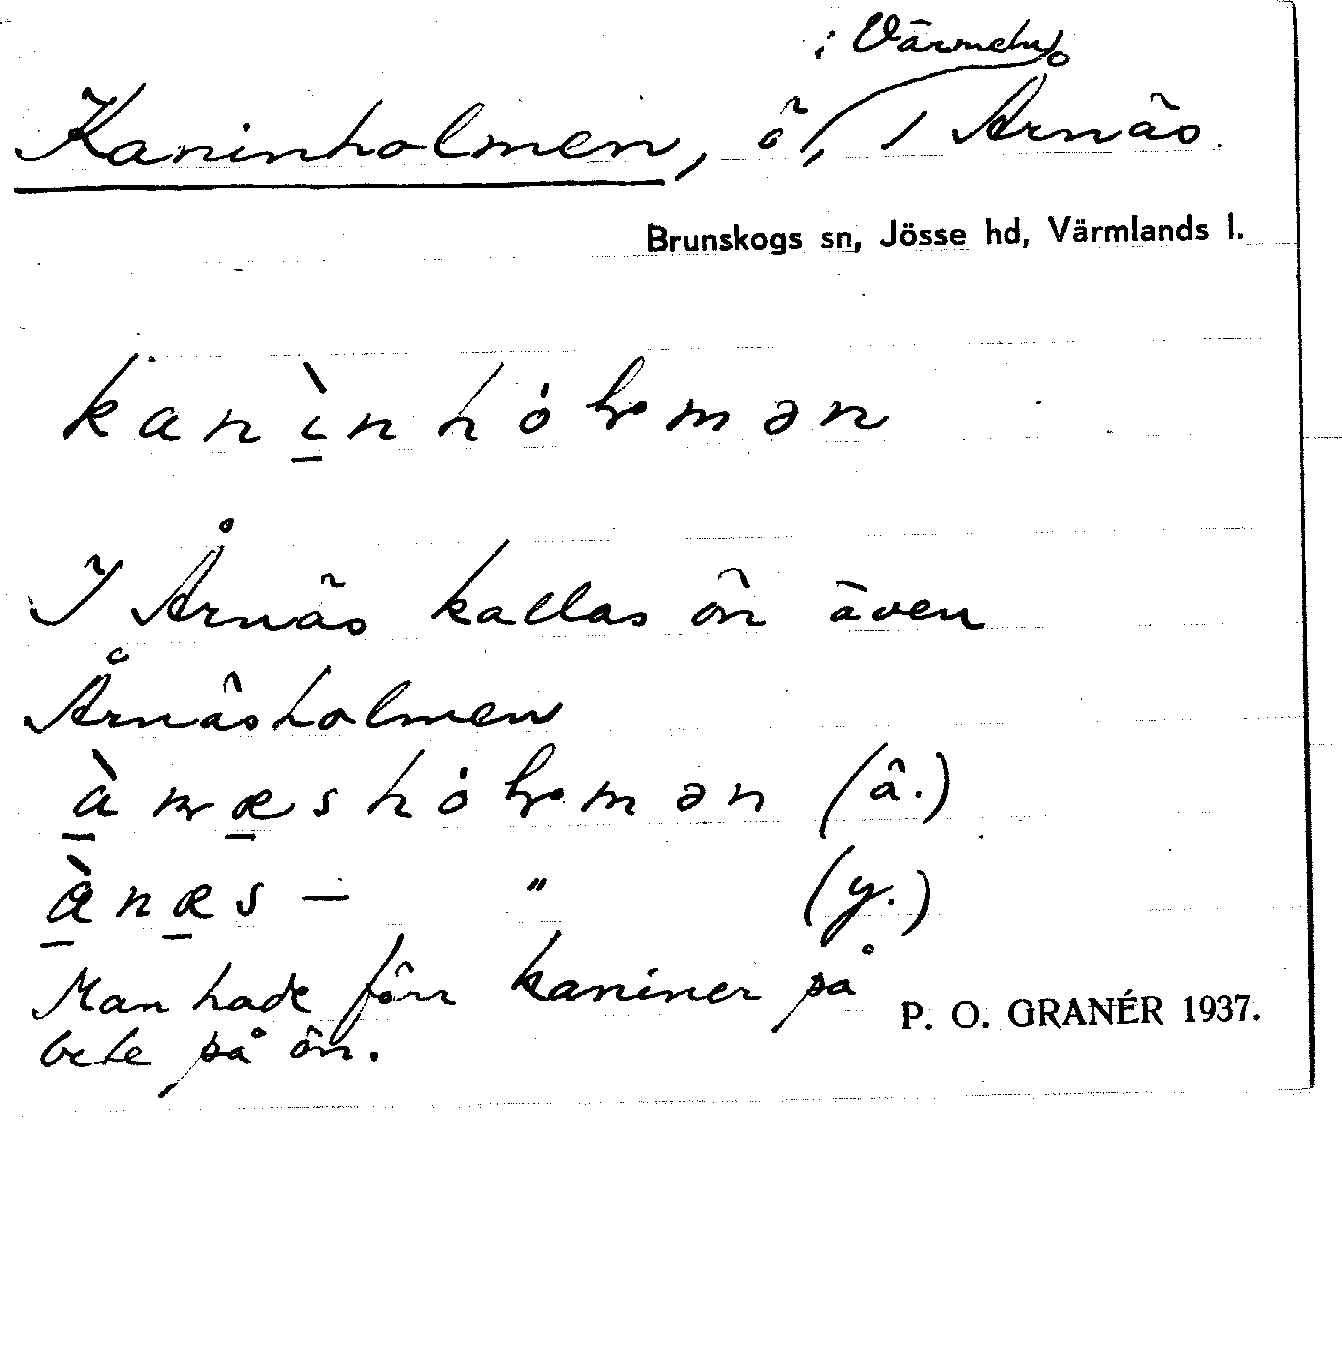 i Värmeln
Kaninholmen, ö, / Årnäs.
Brunskogs sn, Jösse hd, Värmlands l.
kanìnhólmən
I Årnäs kallas ön även
Årnäsholmen
ànæshólmən (ä.)
æ̀næs – " (y.)
Man hade förr kaniner på
bete på ön.
P. O. GRANÉR 1937.